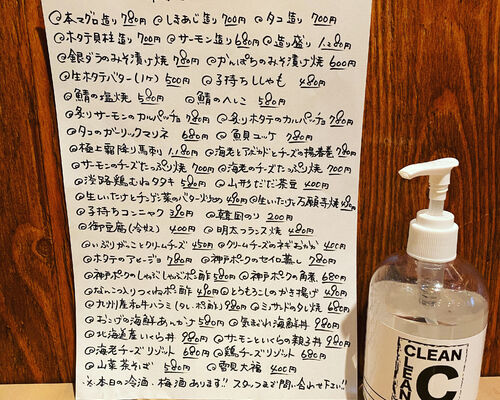 @本マグロ造り 780円 @しまあじ造り 700円 @タコ造り 700円
@ホタテ貝柱造り 700円 @サーモン造り 680円 @造り盛り 1,280円
@銀ダラのみそ漬け焼 780円 @かんぱちのみそ漬け焼 600円
@生ホタテバター(1ヶ) 500円 @子持ちししゃも 480円
@鯖の塩焼 580円 @鯖のへしこ 580円
@炙りサーモンのカルパッチョ 780円 @炙りホタテのカルパッチョ 780円
@タコのガーリックマリネ 680円 @魚貝ユッケ 780円
@極上霜降り馬刺 1,180円 @海老とアボカドとチーズの揚春巻 780円
@サーモンのチーズたっぷり焼 780円 @海老のチーズたっぷり焼 780円
@淡路鶏むねタタキ 580円 @山形だだ茶豆 400円
@生しいたけとチンゲン菜のバター炒め 490円 @生しいたけと万願寺焼
@子持ちコンニャク 390円 @韓国のり 200円
@御豆腐(冷奴) 400円 @明太フランス焼 480円
@いぶりがっことクリームチーズ 450円 @クリームチーズのネギおかか 400円
@ホタテのアヒージョ 780円 @神戸ポークのセイロ蒸し 780円
@神戸ポークのしゃぶしゃぶポン酢 580円 @神戸ポークの角煮 680円
@なんこつ入りつくねポン酢 490円 @とうもろこしのかき揚げ 490円
@九州産和牛ハラミ(タレ・ポン酢) 980円 @ミノサンドのタレ焼 680円
@おこげの海鮮あんかけ 580円 @気まぐれ海鮮丼 980円
@北海道産いくら丼 980円 @サーモンといくらの親子丼 980円
@海老チーズリゾット 680円 @鶏チーズリゾット 680円
@山菜茶そば 580円 @雪見大福 400円
※本日の冷酒、梅酒あります!! スタッフまで問い合わせ下さい!!
CLEAN
CLEAN
C